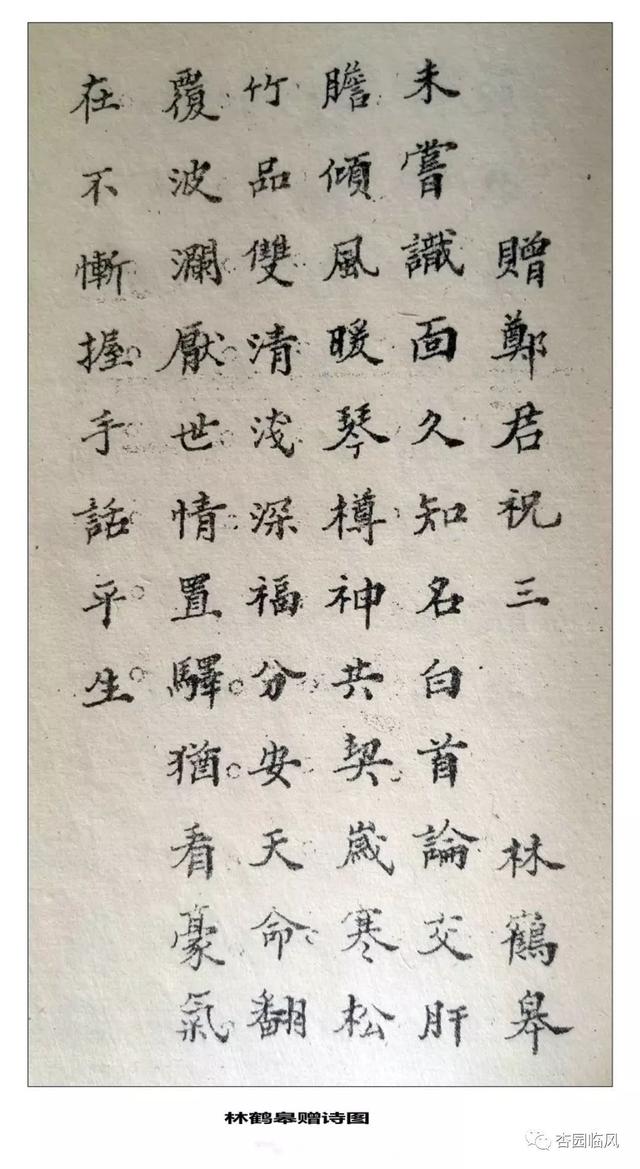 贈鄭君祝三 林鶴皋
未嘗識面久知名白首論交肝
膽傾風暖琴樽神共契歲寒松
竹品雙清淺深福分安天命翻
覆波瀾厭世情置驛猶看豪氣
在不慚握手話平生
林鹤皋赠诗图
杏园临风